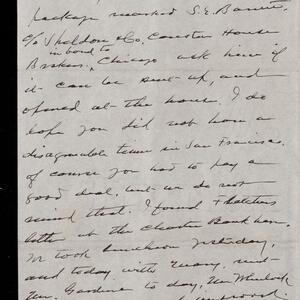 package marked S. E. Barrett,
c/o Sheldon & Co. Custom House
in bond to
Brokers, Chicago ask him if
it can be sent up, and
opened at the house. I do
hope you did not have a
disagreeable time in San Francisco.
of course you had to pay a
good deal, but we do not
mind that. I found
letter at the Charter Bank here.
We took luncheon yesterday,
and today, with
Mr. Gardine to day,